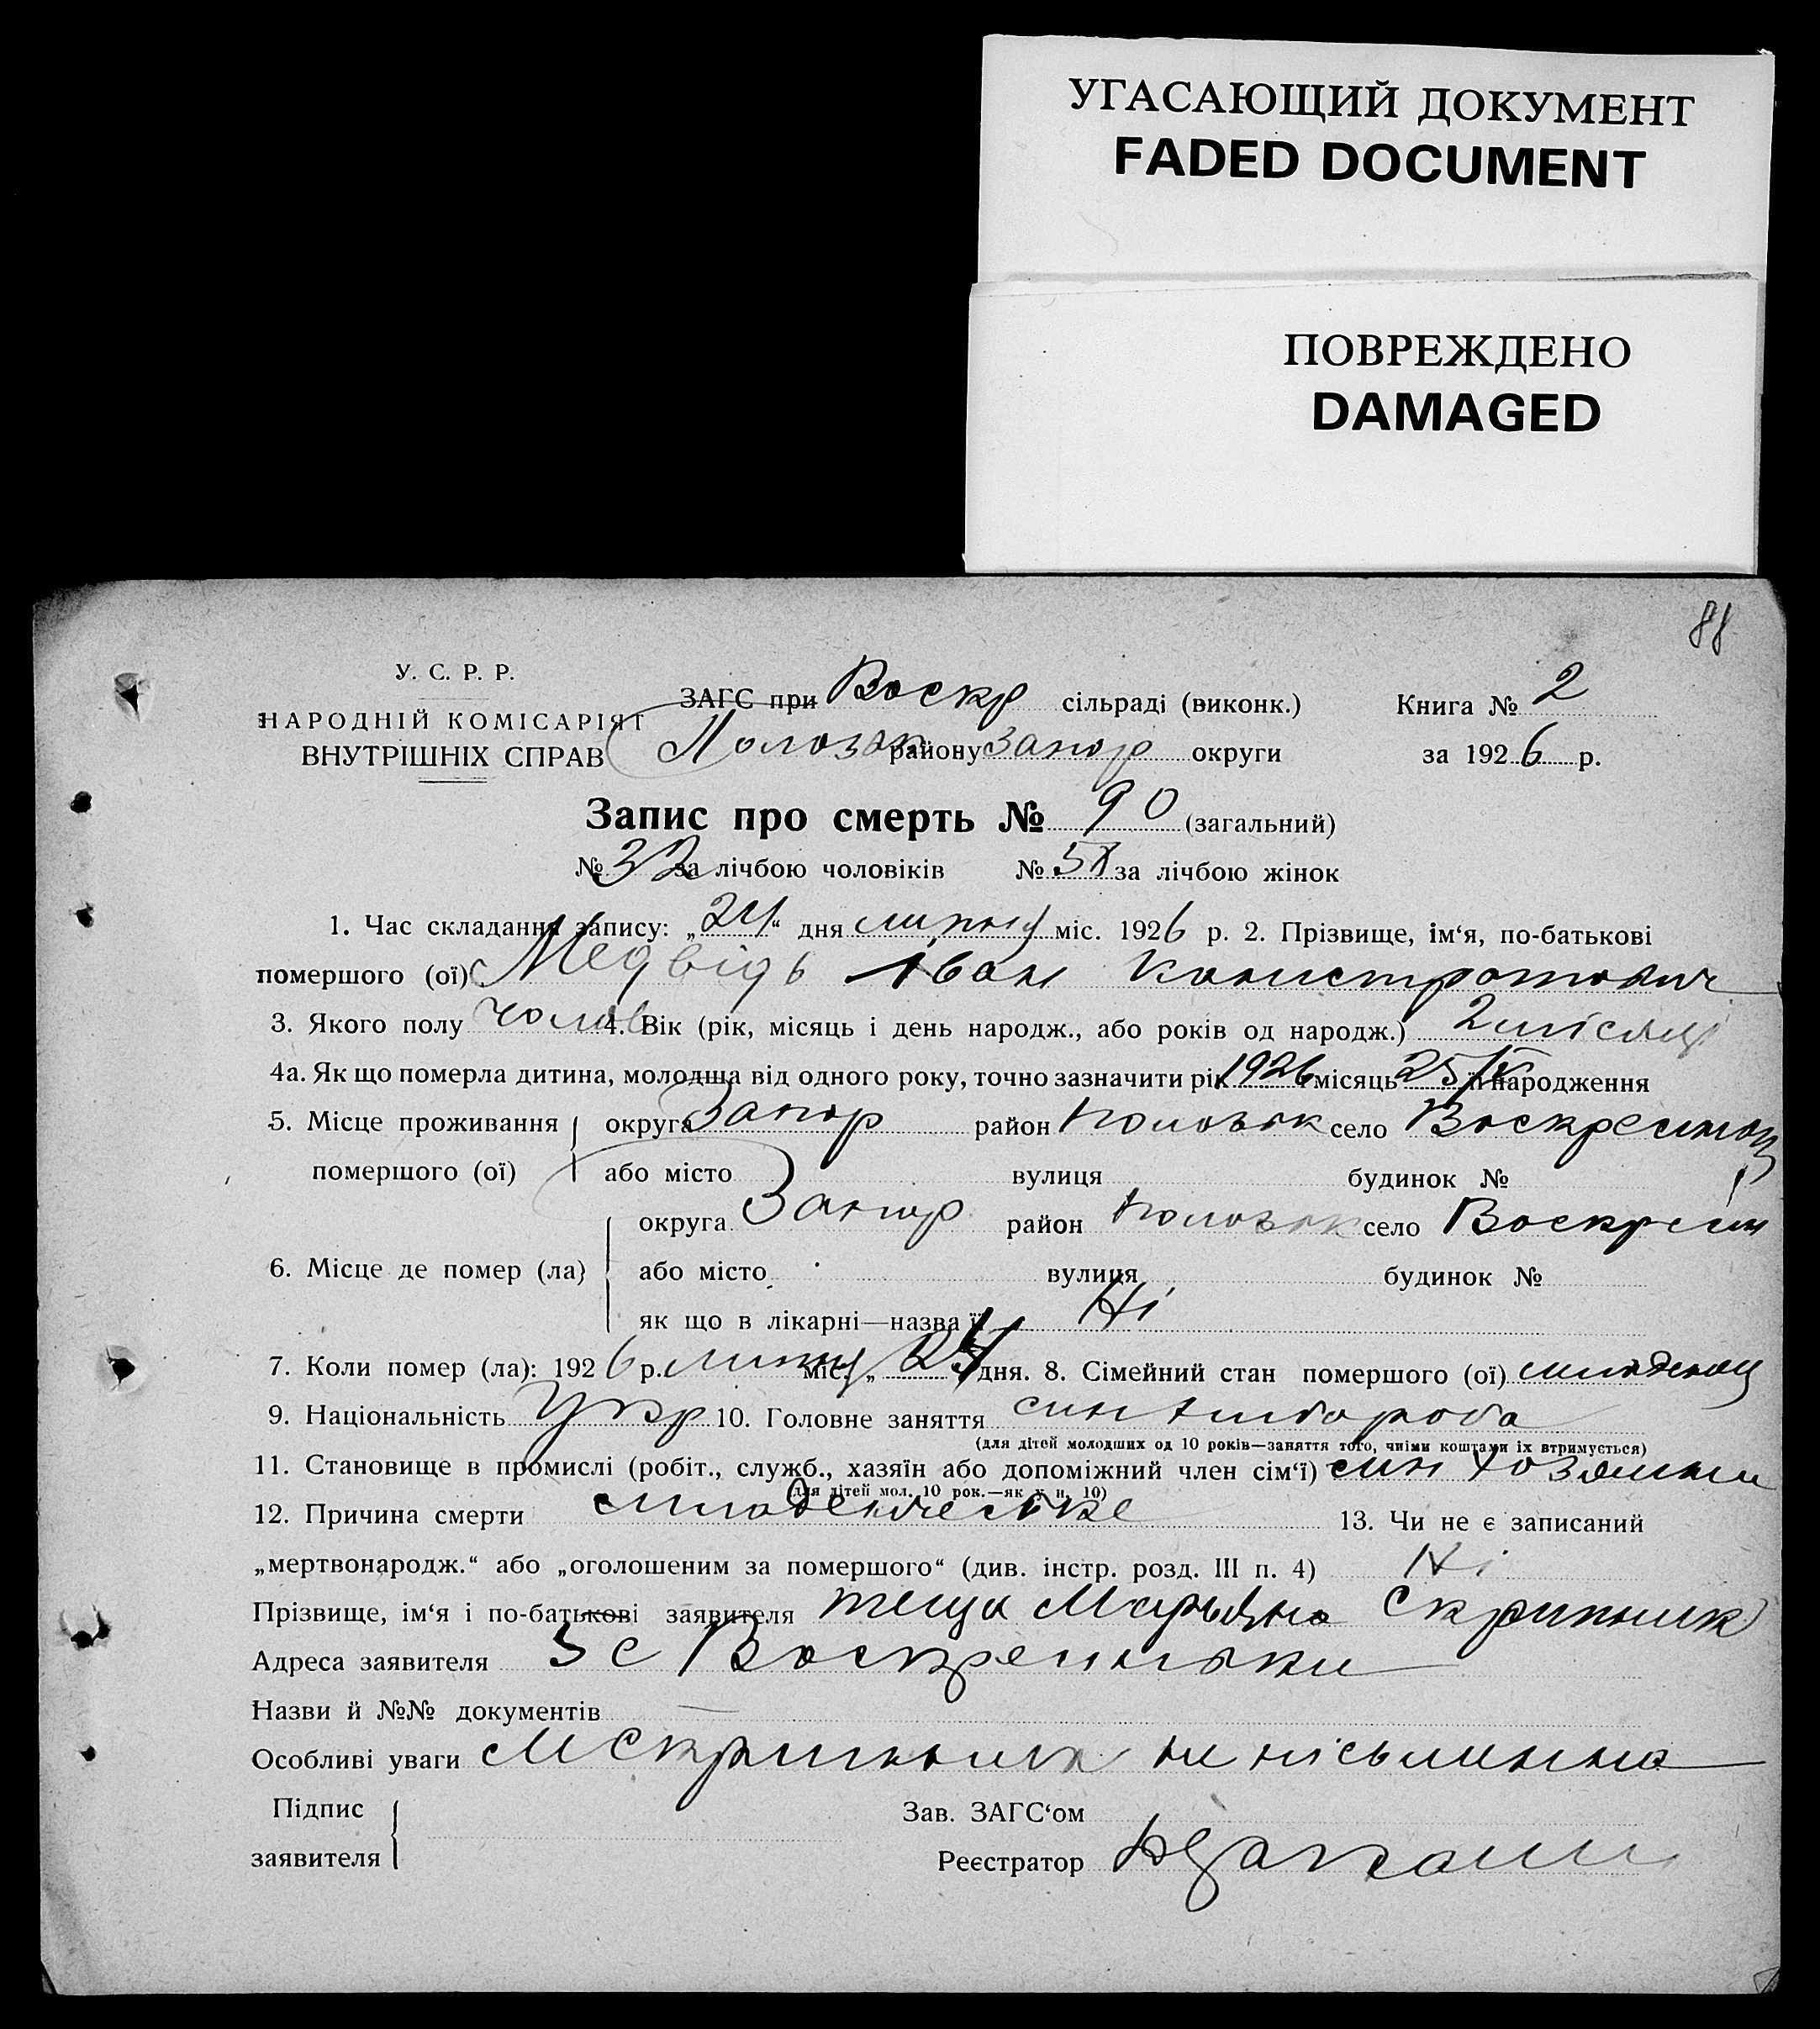 УГАСАЮЩИЙ ДОКУМЕНТ
FADED DOCUMENT
ПОВРЕЖДЕНО
DAMAGED
88
У. С. Р. Р.
НАРОДНІЙ КОМІСАРІЯТ
ВНУТРІШНІХ СПРАВ
ЗАГС при Воскр сільраді (виконк.) Книга № 2
Пологівськ району Запор округи за 1926 р.
Запис про смерть № 90 (загальний)
№ 32 за лічбою чоловіків № 58 за лічбою жінок
1. Час складання запису: „24“ дня липня міс. 1926 р. 2. Прізвище, ім‘я, по-батькові
помершого (ої) Медвідь Іван Каністратович
3. Якого полу чолов 4. Вік (рік, місяць і день народж., або років од народж.) 2 місяці
4а. Як що померла дитина, молодша від одного року, точно зазначити рік 1926 місяць 25/V народження
5. Місце проживання округа Запор район село
помершого (ої) або місто вулиця будинок №
округа Запор район село Воскресін
6. Місце де помер (ла) або місто вулиця будинок №
як що в лікарні—назва її Ні
7. Коли помер (ла): 1926 р. липня міс. „ дня. 8. Сімейний стан помершого (ої) младенец
9. Національність Укр 10. Головне заняття син хлібороба
(для дітей молодших од 10 років—заняття того, чиїми коштами їх втримується)
11. Становище в промислі (робіт., служб., хазяїн або допоміжний член сім‘ї) син хозяина
(для дітей мол. 10 рок.—як у п. 10)
12. Причина смерти младенческе 13. Чи не є записаний
„мертвонародж.“ або „оголошеним за помершого“ (див. інстр. розд. III п. 4) Ні
Прізвище, ім‘я і по-батькові заявителя теща Марьяна Скрипник
Адреса заявителя З с Воскресеньки
Назви й №№ документів
Особливі уваги М Скрипник не письменна
Підпис
заявителя
Зав. ЗАГС‘ом
Реєстратор